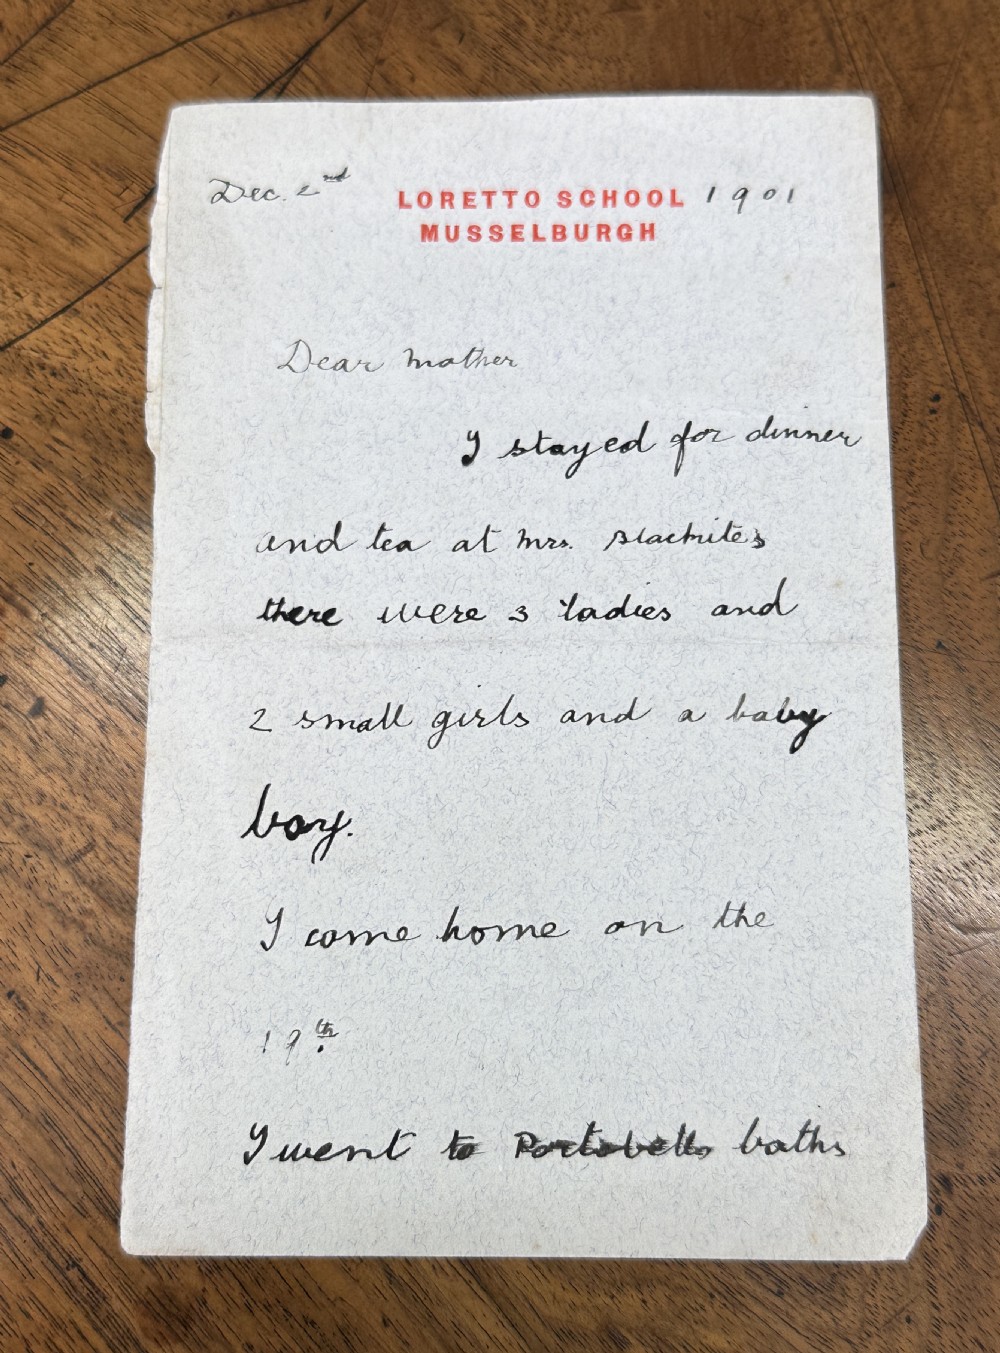 Dec. 2nd LORETTO SCHOOL 1901
MUSSELBURGH
Dear Mother
I stayed for dinner
and tea at Mrs.
there were 3 ladies and
2 small girls and a baby
boy.
I come home on the
19th
I went to Portobello baths